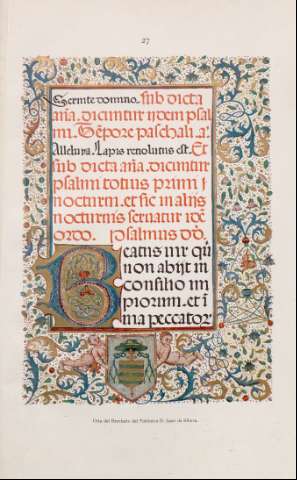 27
Seruite domino. sub dicta
aña. dicuntur ijdem psal
mi. Tẽpore paschali. aª.
Alleluia. Lapis reuolutus est. Et
sub dicta aña. dicuntur
psalmi totius primi
nocturni. et sic in alijs
nocturnis seruatur idẽ
ordo. psalmus dd.
Beatus uir qui
non abijt in
consilio im
piorum. et i
uia peccator
Orla del Breviario del Patriarca D. Juan de Ribera.